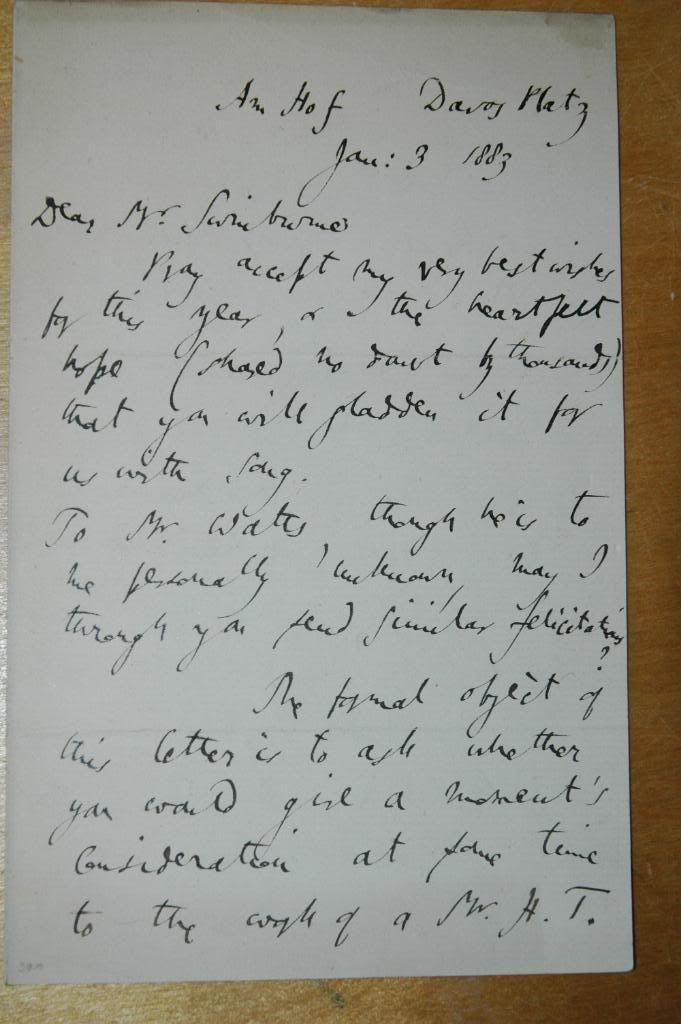 Am Hof Davos Platz
Jan: 3 1883
Dear Mr. Swinburne
Pray accept my very best wishes
for this year, & the heartfelt
hope (shared no doubt by thousands)
that you will gladden it for
us with song.
To Mr. Watts, though he is to
me personally unknown, may I
through you send similar felicitations
?
The formal object of
this letter is to ask whether
you would give a moment's
consideration at some time
to the work of a Mr. H. T.